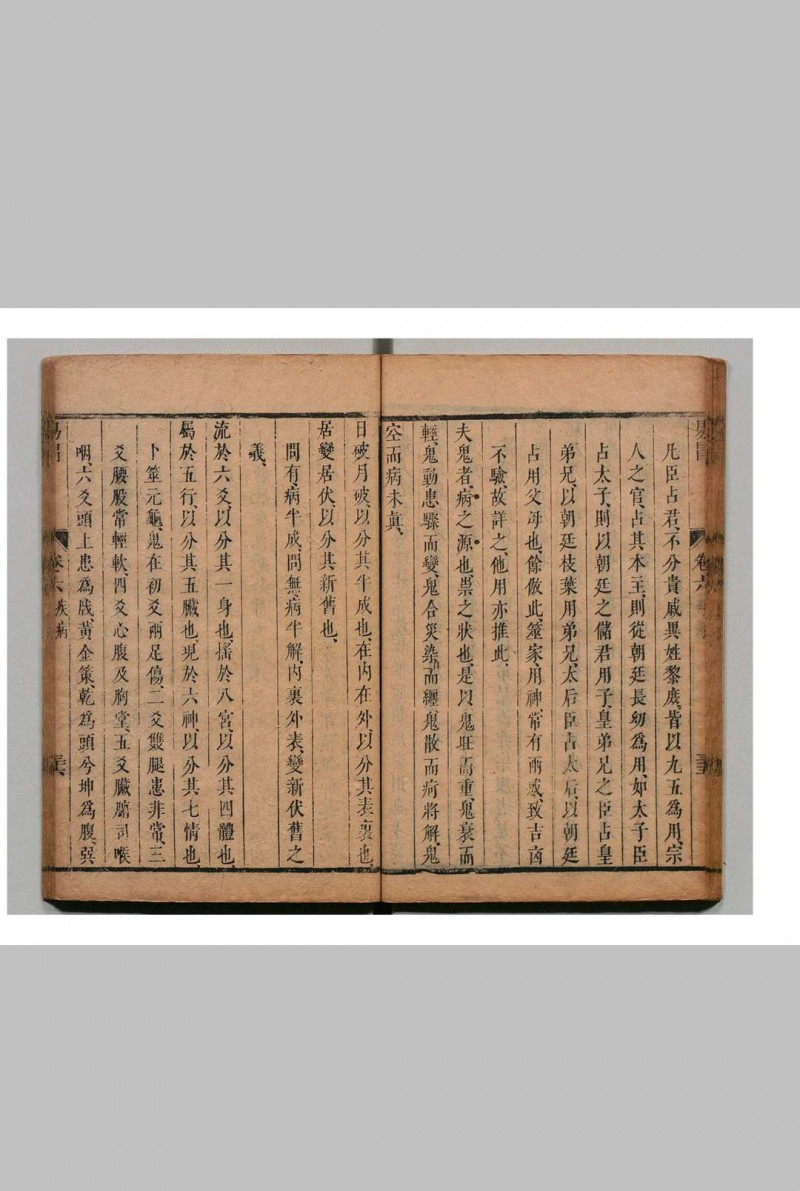 凡臣占君、不分貴戚異姓黎庶、皆以九五爲用、宗
人之官、占其本主、則從朝廷長幼爲用、如太子臣
占太子、則以朝廷之儲君用子、皇弟兄之臣占皇
弟兄、以朝廷枝葉用弟兄、太后臣占太后、以朝廷
占用父母也、餘倣此、筮家用神常有兩惑、致吉㐫
不驗、故詳之、他用亦推此、
夫鬼者、病之源也祟之狀也、是以鬼旺而重鬼衰而
輕、鬼動患驟而變、鬼合災染而纏鬼散而病將解、鬼
空而病未眞、
日破月破、以分其半成也、在内在外、以分其表裏也、
居變居伏以分其新舊也、
問有、病半成、問無、病半解、内裏外表、變新伏舊之
義、
流於六爻、以分其一身也、搖於八宮、以分其四體也、
屬於五行、以分其五臟也、現於六神、以分其七情也、
卜筮元龜、鬼在初爻兩足傷、二爻雙腿患非常、三
爻腰股常輕軟、四爻心腹及胸堂、五爻臟腑司喉
咽、六爻頭上患爲殃、黃金策、乾爲頭兮坤爲腹、巽
卷六 疾病
卷六